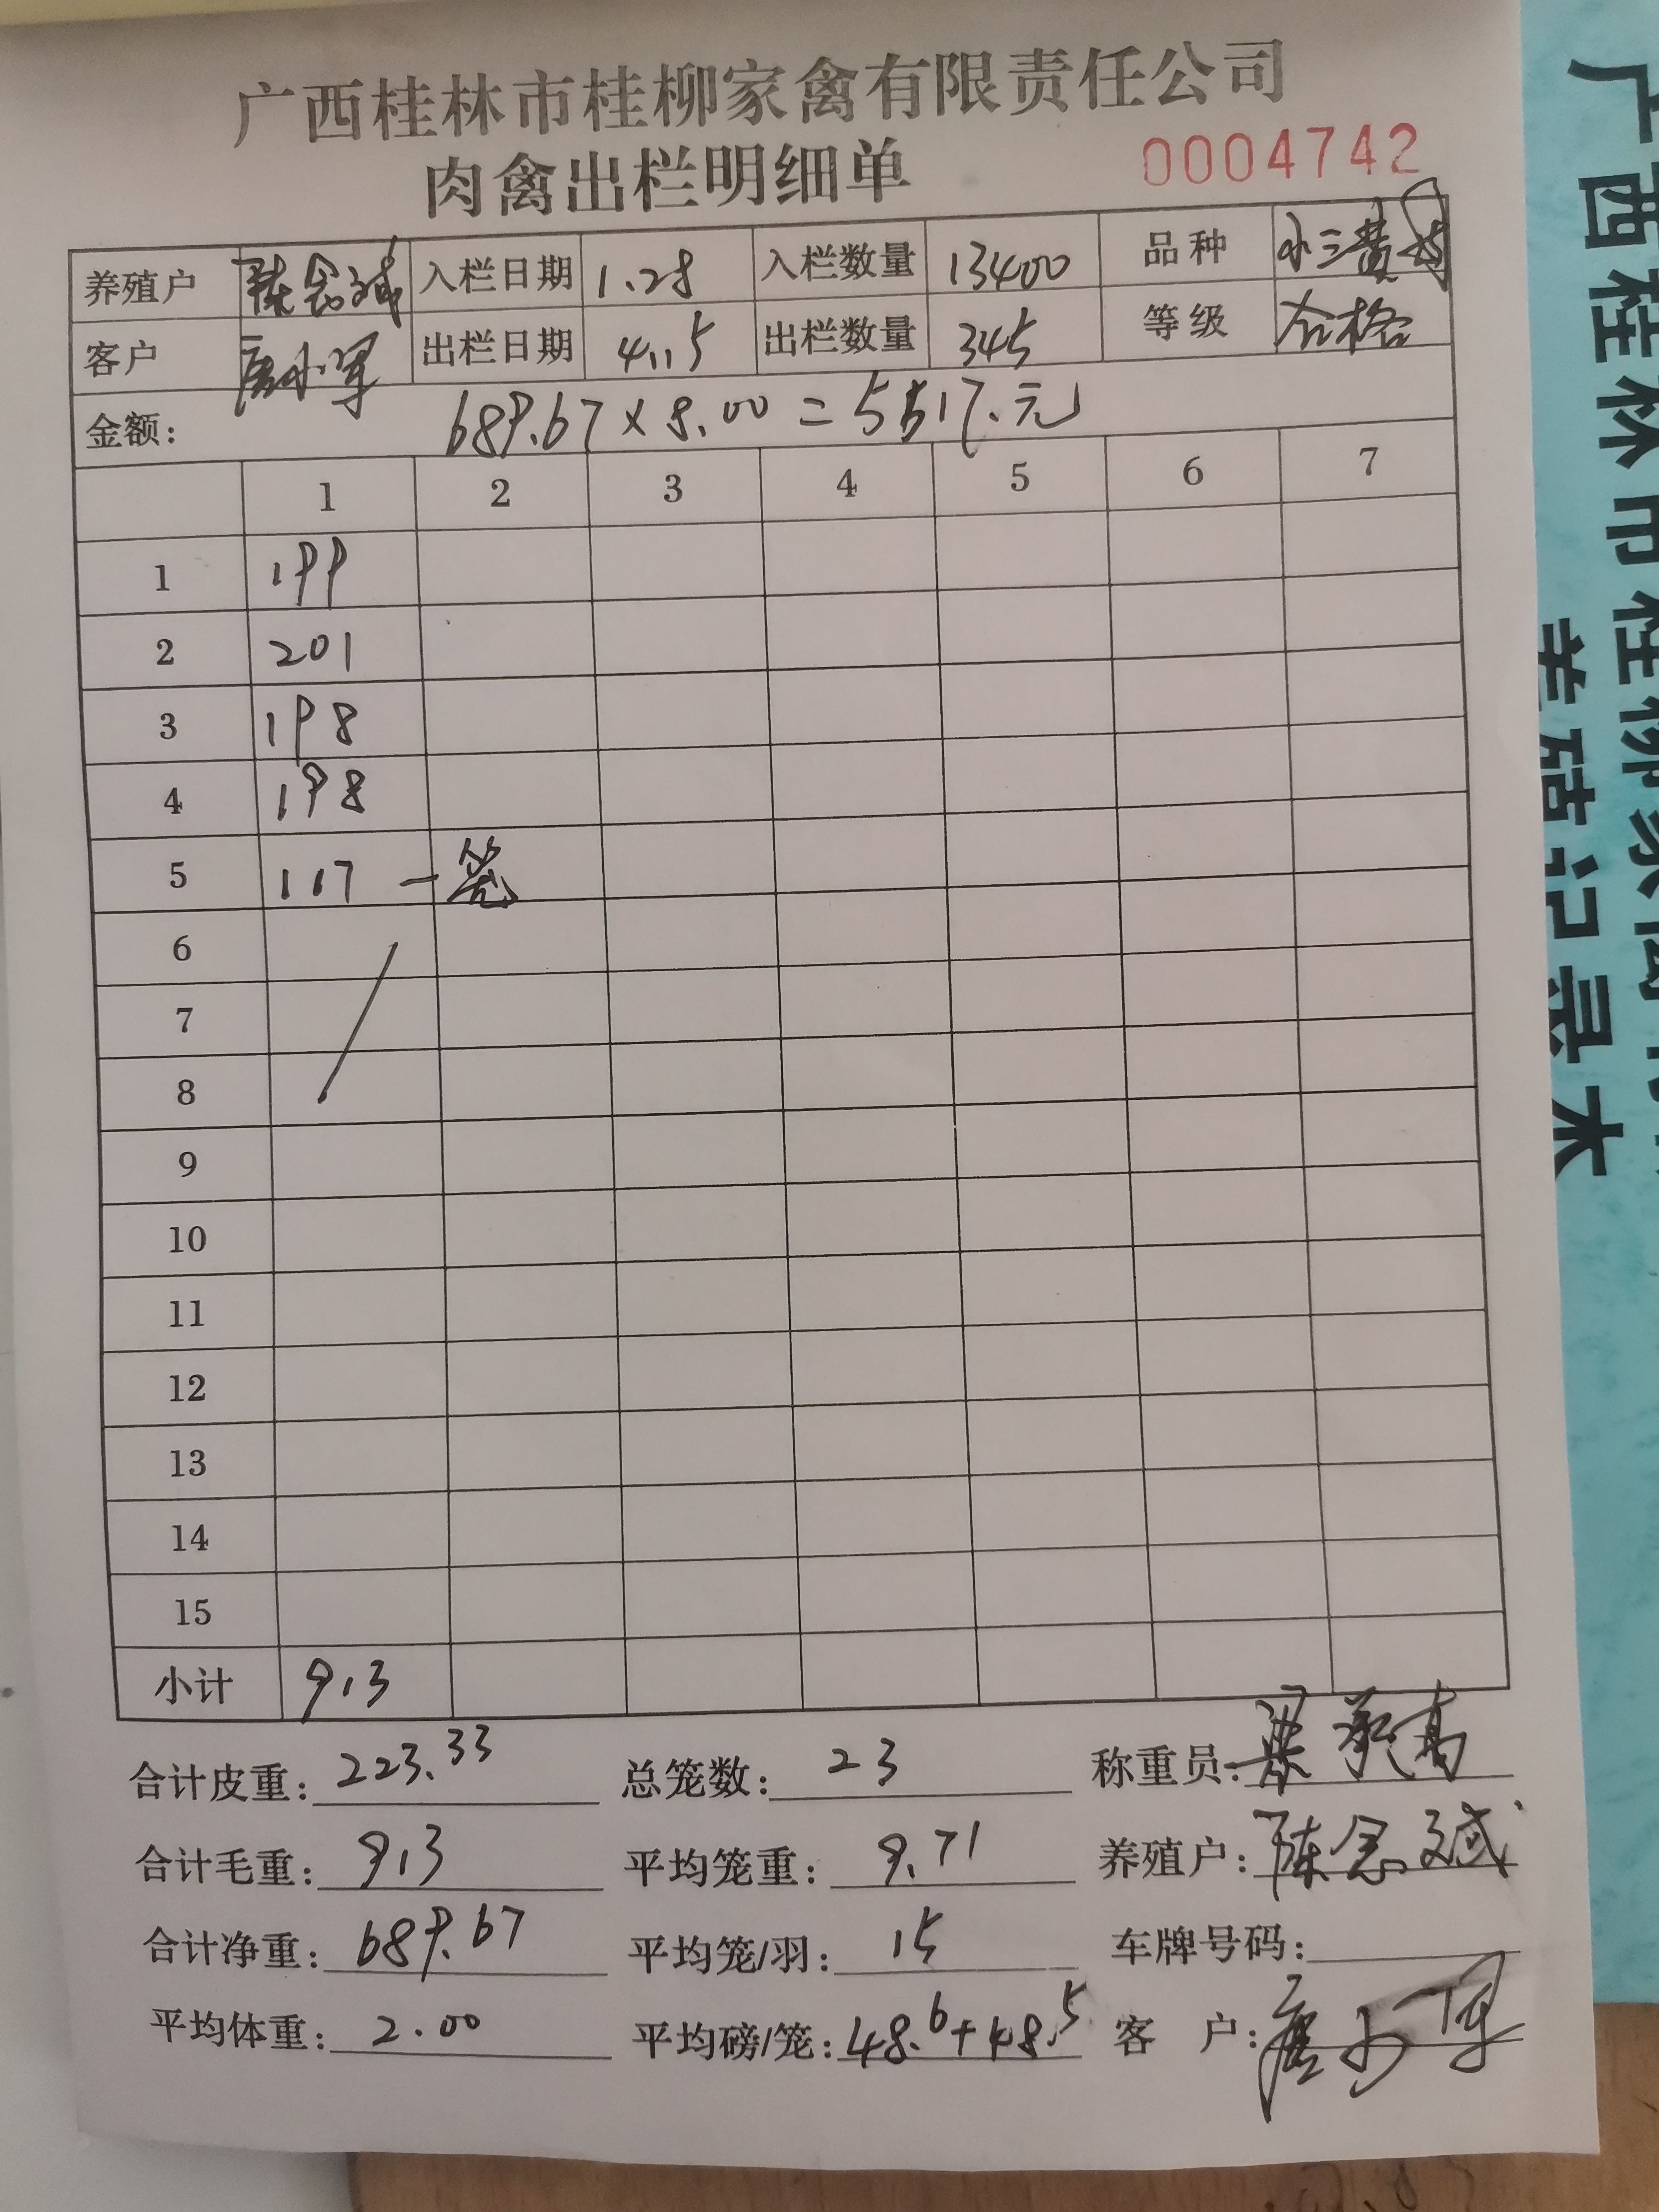 广西桂林市桂柳家禽有限责任公司
肉禽出栏明细单
0004742
养殖户 陈念斌 入栏日期 1.28 入栏数量 13400 品种 小三黄
客户 唐小军 出栏日期 4.15 出栏数量 345 等级 合格
金额: 689.67 × 8.00 = 5517.元
1 2 3 4 5 6 7
1 199
2 201
3 198
4 198
5 117 一笼
6
7
8
9
10
11
12
13
14
15
小计 913
合计皮重: 223.33 总笼数: 23 称重员: 梁
合计毛重: 913 平均笼重: 9.71 养殖户: 陈念斌
合计净重: 689.67 平均笼/羽: 15 车牌号码:
平均体重: 2.00 平均磅/笼: 48.6+48.5 客 户: 唐小军
广西桂林市桂柳家禽有
养殖记录本